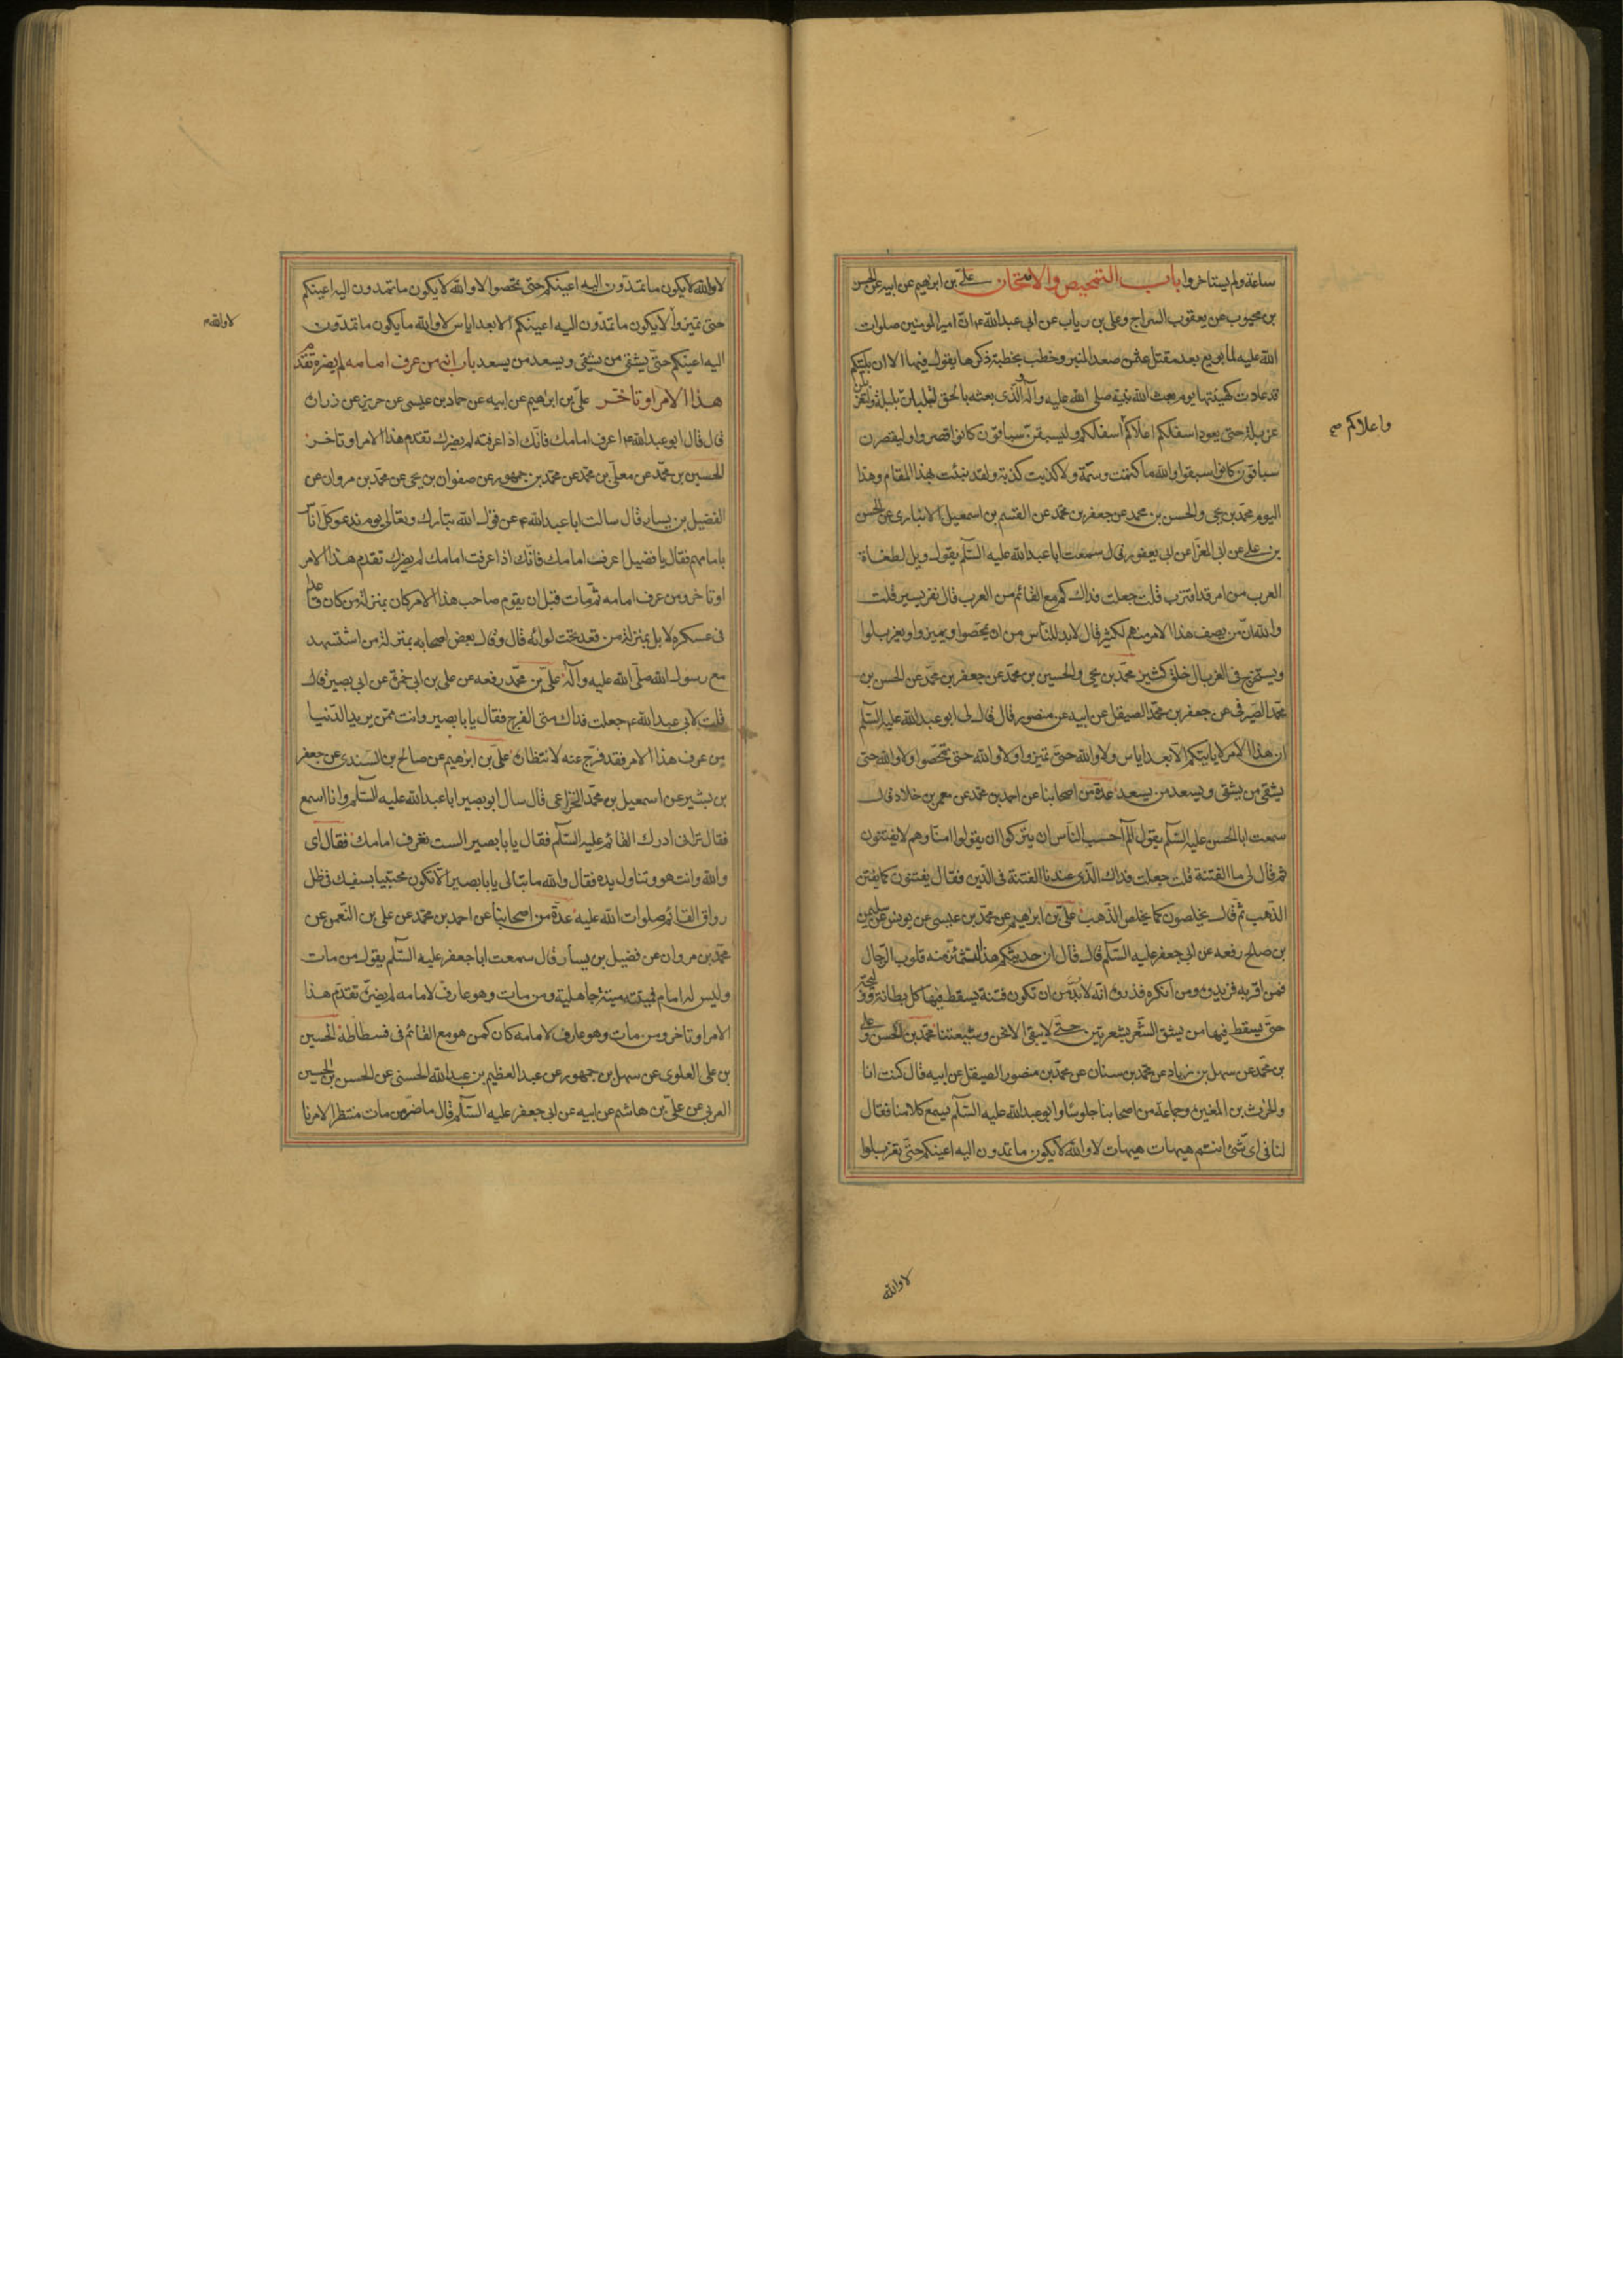 ساعة ولم يستاخروا باب التمحيص والامتحان علي بن ابرهيم عن ابيه عن الحسن
بن محبوب عن يعقوب السراج وعلى بن رياب عن ابى عبدالله ع ان امير المومنين صلوات
الله عليه لما بويع بعد مقتل عثمن صعد المنبر وخطب بخطبة ذكرها يقول فيها الا ان بليتكم
قد عادت كهيئتها يوم بعث الله نبيه صلى الله عليه وآله والذى بعثه بالحق لتبلبلن بلبلة ولتغربلن
غربلة حتى يعود اسفلكم اعلاكم اسفلكم وليسبقن سباقون كانوا قصروا وليقصرن
واعلاكم صح
سباقون كانوا سبقوا والله ما كتمت وسمة ولا كذبت كذبة ولقد نبئت بهذا المقام وهذا
اليوم محمد بن يحيى والحسن بن محمد عن جعفر بن محمد عن القسم بن اسمعيل الانبارى عن الحسن
بن على عن ابى المغرا عن ابى يعفور قال سمعت ابا عبدالله عليه السلم يقول ويل لطغاة
العرب من امر قد اقترب قلت جعلت فداك كم مع القائم من العرب قال نفر يسير قلت
والله ان من يصف هذا الامر منهم لكثير قال لابد للناس من ان يمحصوا ويميزوا ويغربلوا
ويستخرج فى الغربال خلق كثير محمد بن يحيى والحسين بن محمد عن جعفر بن محمد عن الحسن بن
محمد الصيرفى عن جعفر بن محمد الصيقل عن ابيه عن منصور قال قال لى ابو عبدالله عليه السلم
ان هذا الامر لا ياتيكم الا بعد اياس ولا والله حتى تميزوا ولا والله حتى تمحصوا ولا والله حتى
يشقى من يشقى ويسعد من يسعد عدة من اصحابنا عن احمد بن محمد عن معمر بن خلاد قال
سمعت ابا الحسن عليه السلم يقول الم أحسب الناس ان يتركوا ان يقولوا امنا وهم لا يفتنون
ثم قال لى ما الفتنة قلت جعلت فداك الذى عندنا الفتنة فى الدين فقال يفتنون كما يفتن
الذهب ثم قال يخلصون كما يخلص الذهب على بن ابراهيم عن محمد بن عيسى عن يونس عن سليمن
بن صلح رفعه عن ابى جعفر عليه السلم قال قال ان حديثكم هذا لتشمئز منه قلوب الرجال
فمن اقر به فزيدوه ومن انكره فذروه انه لابد من ان تكون فتنة يسقط فيها كل بطانة ووليجة
حتى يسقط فيها من يشق الشعر بشعرتين حتى لا يبقى الا نحن وشيعتنا محمد بن الحسن وعلى
بن محمد عن سهل بن زياد عن محمد بن سنان عن محمد بن منصور الصيقل عن ابيه قال كنت انا
والحرث بن المغيرة وجماعة من اصحابنا جلوسا وابو عبدالله عليه السلم يسمع كلامنا فقال
لنا فى اى شئ انتم هيهات هيهات لا والله لا يكون ما تمدون اليه اعينكم حتى تغربلوا
لا والله
لا والله لا يكون ما تمدون اليه اعينكم حتى تمحصوا لا والله لا يكون ما تمدون اليه اعينكم
حتى تميزوا لا يكون ما تمدون اليه اعينكم الا بعد اياس لا والله ما يكون ما تمدون
لا والله
اليه اعينكم حتى يشقى من يشقى ويسعد من يسعد باب انه من عرف امامه لم يضره تقدم
هذا الامر او تاخر على بن ابراهيم عن ابيه عن حماد بن عيسى عن حريز عن زرارة
قال قال ابو عبدالله ع اعرف امامك فانك اذا عرفته لم يضرك تقدم هذا الامر او تاخر
الحسين بن محمد عن معلى بن محمد عن محمد بن جمهور عن صفوان بن يحيى عن محمد بن مروان عن
الفضيل بن يسار قال سالت ابا عبدالله ع عن قول الله تبارك وتعالى يوم ندعو كل اناس
بامامهم فقال يا فضيل اعرف امامك فانك اذا عرفت امامك لم يضرك تقدم هذا الامر
او تاخر ومن عرف امامه ثم مات قبل ان يقوم صاحب هذا الامر كان بمنزلة من كان قاعدا
فى عسكره لا بل بمنزلة من قعد تحت لوائه قال وقال بعض اصحابه بمنزلة من استشهد
مع رسول الله صلى الله عليه وآله على بن محمد رفعه عن على بن ابى حمزة عن ابى بصير قال
قلت لابى عبدالله ع جعلت فداك متى الفرج فقال يا با بصير وانت ممن يريد الدنيا
من عرف هذا الامر فقد فرج عنه لانتظاره على بن ابرهيم عن صالح بن السندى عن جعفر
بن بشير عن اسمعيل بن محمد الخزاعى قال سال ابو بصير ابا عبدالله عليه السلم وانا اسمع
فقال ترانى ادرك القائم عليه السلم فقال يا با بصير الست تعرف امامك فقال اى
والله وانت هو وتناول يده فقال والله ما تبالى يا با بصير الا تكون محتبيا بسيفك فى ظل
رواق القائم صلوات الله عليه عدة من اصحابنا عن احمد بن محمد عن على بن النعمن عن
محمد بن مروان عن فضيل بن يسار قال سمعت ابا جعفر عليه السلم يقول من مات
وليس له امام فميتته ميتة جاهلية ومن مات وهو عارف لامامه لم يضره تقدم هذا
الامر او تاخر ومن مات وهو عارف لامامه كان كمن هو مع القائم فى فسطاطه الحسين
بن على العلوى عن سهل بن جمهور عن عبد العظيم بن عبدالله الحسنى عن الحسن بن الحسين
العرنى عن على بن هاشم عن ابيه عن ابى جعفر عليه السلم قال ما ضر من مات منتظرا لامرنا